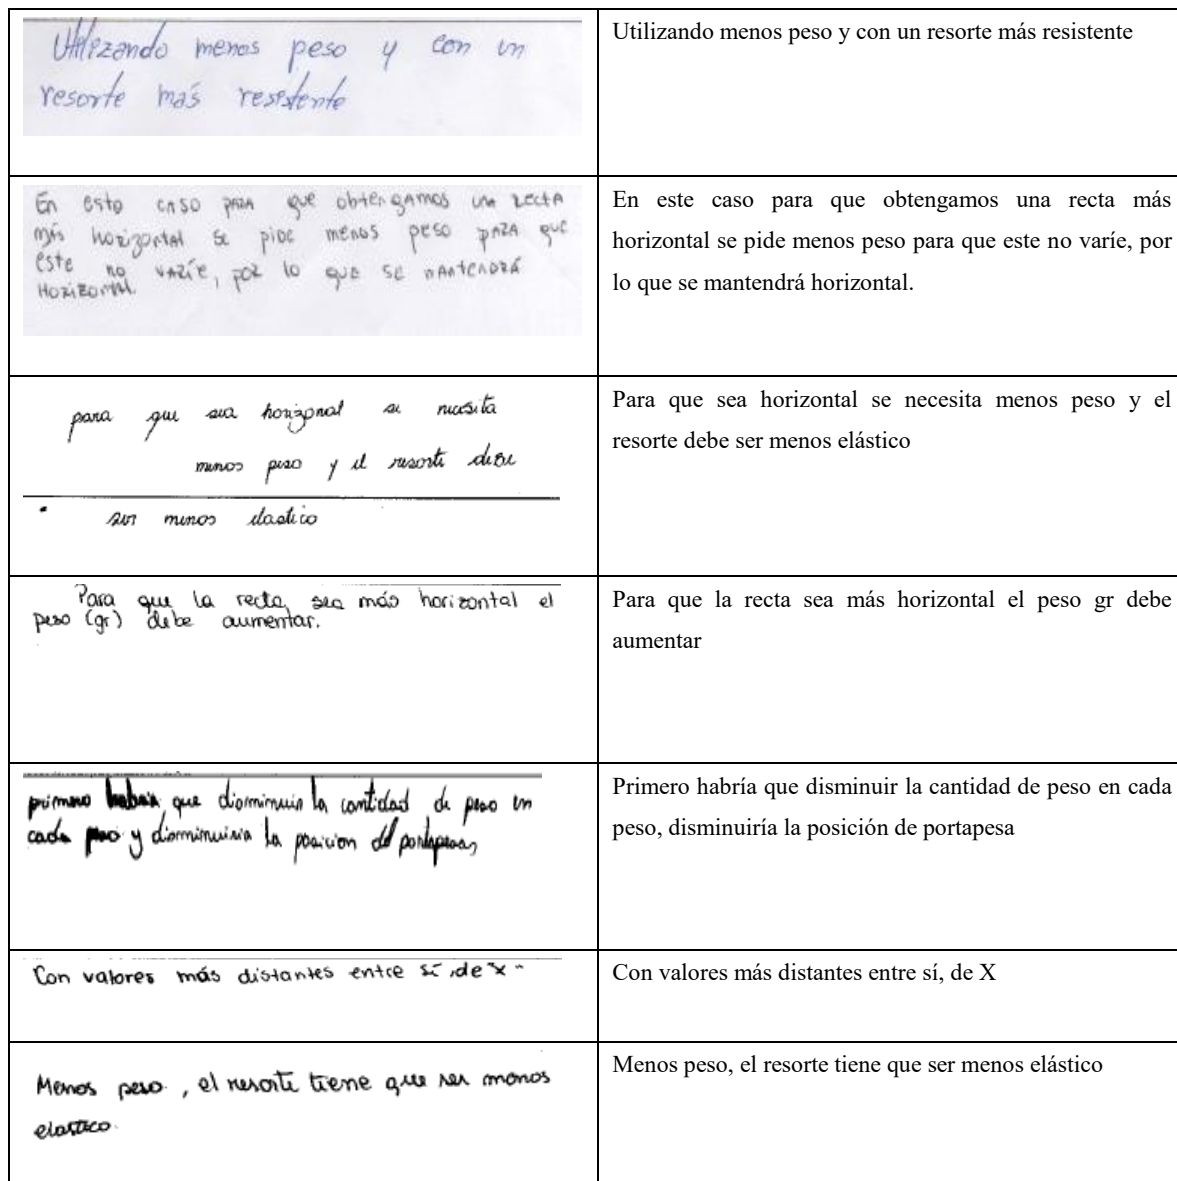 Utilizando menos peso y con un
resorte más resistente
Utilizando menos peso y con un resorte más resistente
En este caso para que obtengamos una recta
más horizontal se pide menos peso para que
este no varíe, por lo que se mantendrá
Horizontal.
En este caso para que obtengamos una recta más
horizontal se pide menos peso para que este no varíe, por
lo que se mantendrá horizontal.
para que sea horizonal se necesita
menos peso y el resorte debe
ser menos elastico
Para que sea horizontal se necesita menos peso y el
resorte debe ser menos elástico
Para que la recta sea más horizontal el
peso (gr) debe aumentar.
Para que la recta sea más horizontal el peso gr debe
aumentar
primero habria que disminuir la cantidad de peso en
cada peso y disminuiria la posicion del portapesas,
Primero habría que disminuir la cantidad de peso en cada
peso, disminuiría la posición de portapesa
Con valores más distantes entre sí, de "x"
Con valores más distantes entre sí, de X
Menos peso, el resorte tiene que ser menos
elastico.
Menos peso, el resorte tiene que ser menos elástico